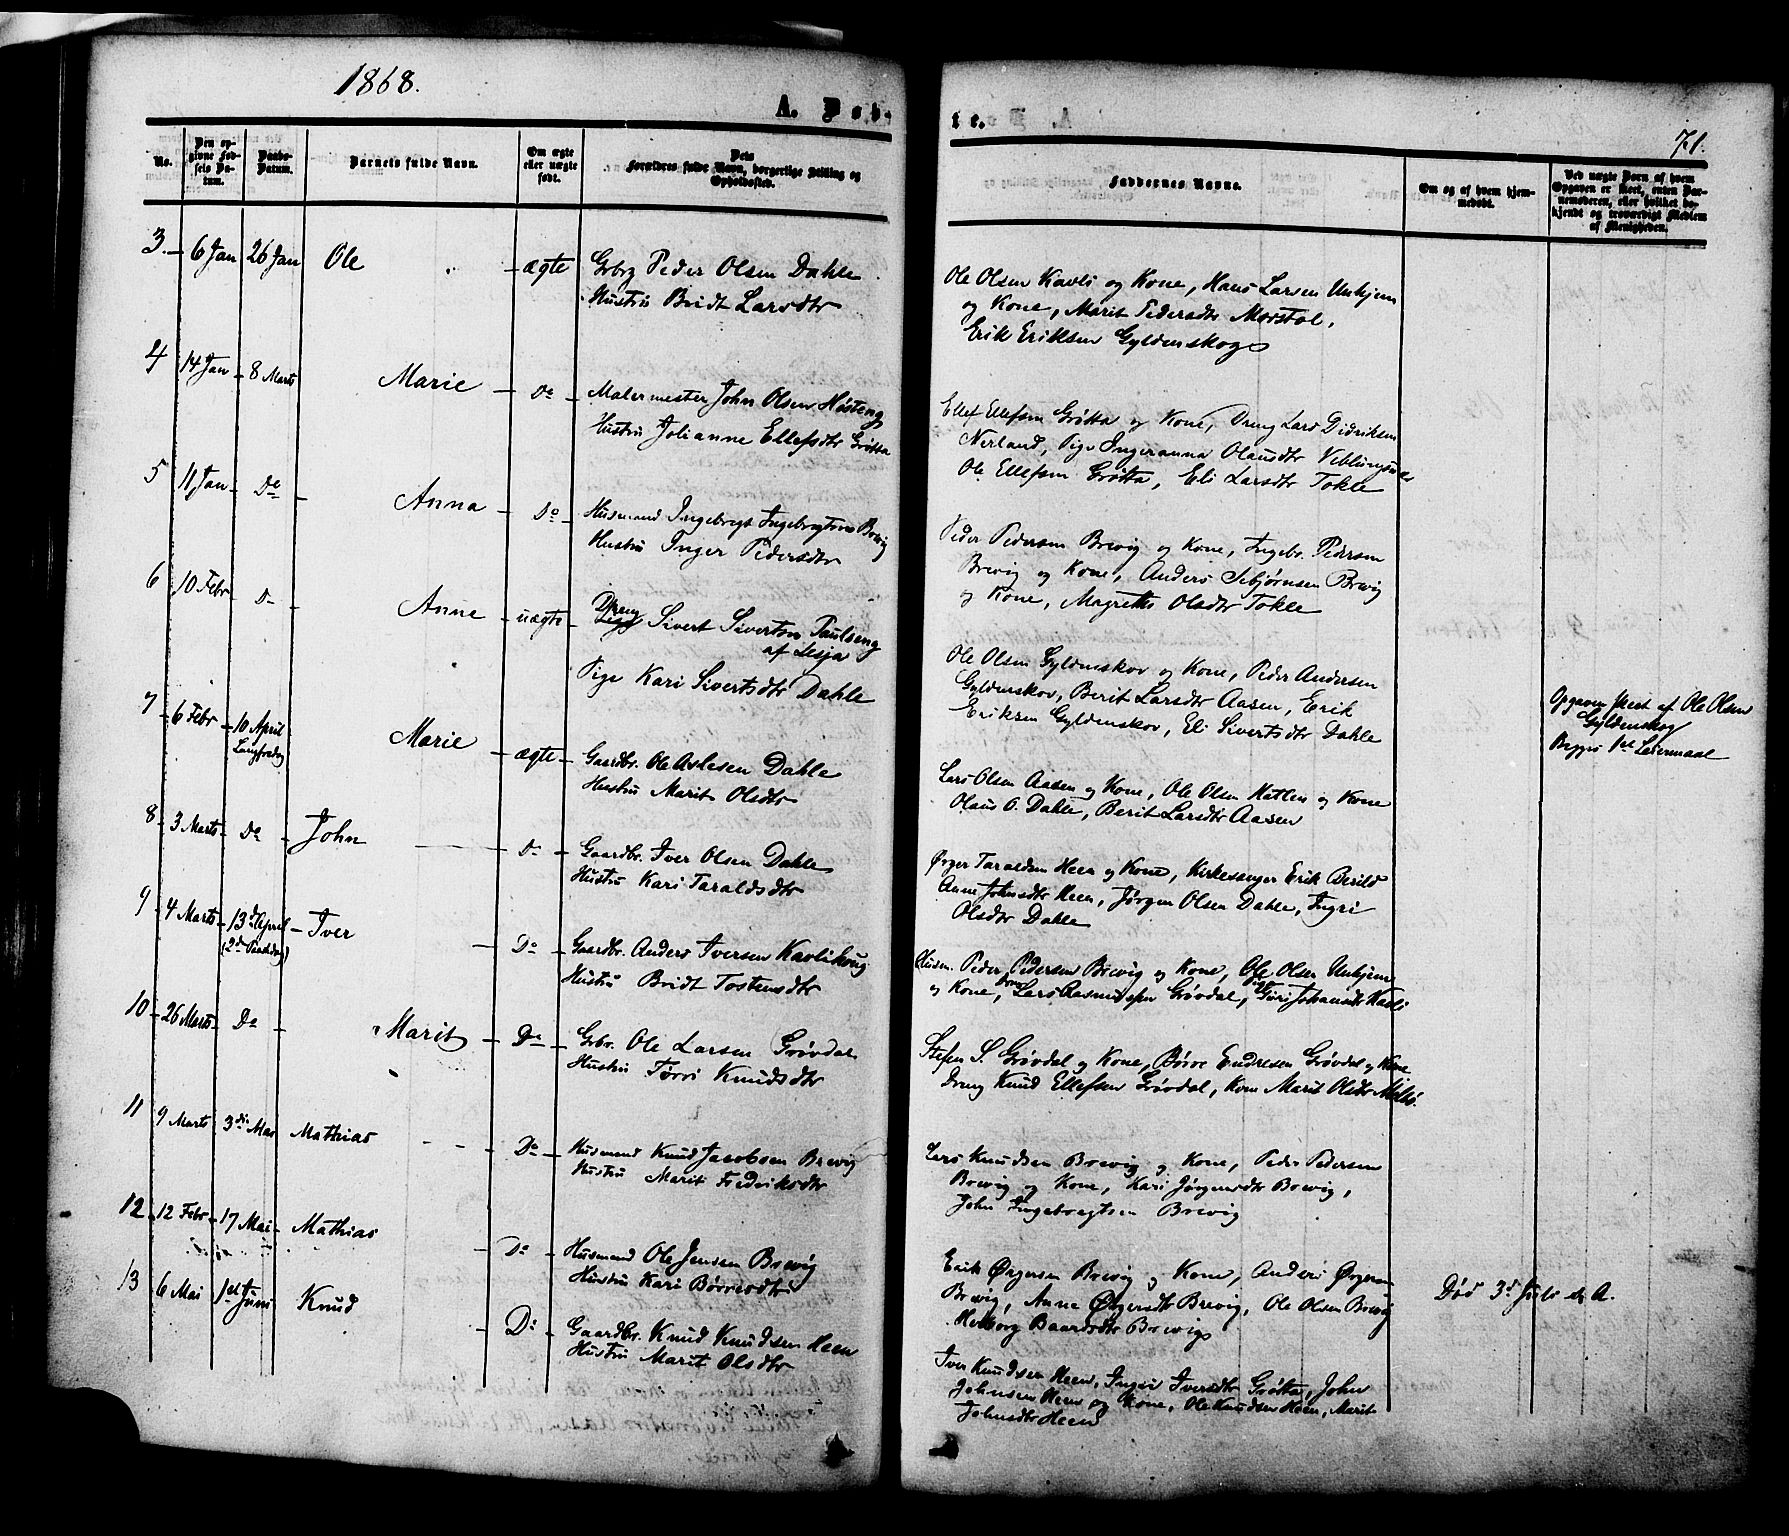 1868.
A. Fød-
te.
71.
No.
Den op-
givne Fød-
sels Da-
tum.
Daabs-
Datum.
Barnets fulde Navn.
Om ægte
eller uægte
født.
Dets
Forældres fulde Navn, borgerlige Stilling og
Opholdssted.
Faddernes Navne.
Om og af hvem hjem-
medøbt.
Ved uægte Børn af hvem
Opgaven er skeet, enten Bar-
nemoderen, eller hvilket be-
kjendt og troværdigt Medlem
af Menigheden.
3. 6 Jan 26 Jan Ole ægte Grbrg Peder Olsen Dahle
Hustru Bridt Larsdtr
Ole Olsen Kavli og Kone, Hans Larsen Unhjem
og Kone, Marit Pedersdtr Morstøl,
Erik Eriksen Gyldenskog
4 14 Jan 8 Marts Marie Do Malermester John Olsen Høsteng
Hustru Jolianne Ellefsdtr Grøtta
Ellef Ellefsen Grøtta og Kone, Dreng Lars Didriksen
Nerland, Pige Ingeranna Olausdtr Veblungsnes
Ole Ellefsen Grøtta, Eli Larsdtr Tokle
5 11 Jan Do Anna Do Husmand Ingebregt Ingebregtsen Brevig
Hustru Inger Pedersdtr
Peder Pedersen Brevig og Kone, Ingebr. Pedersen
Brevig og Kone, Anders Sebjørnsen Brevig
og Kone, Magrethe Olsdtr Tokle
6 10 Febr Do Anne uægte Dreng Sivert Sivertsen Paulseng
af Lesja
Pige Kari Sivertsdtr Dahle
Ole Olsen Gyldenskov og Kone, Peder Andersen
Gyldenskov, Berit Larsdtr Aasen, Erik
Eriksen Gyldenskov, Eli Sivertsdtr Dahle
Opgaven skeet af Ole Olsen
Gyldenskog
Begges 1ste Leiermaal
7 6 Febr 10 April
Langfredag
Marie ægte Gaardbr. Ole Aslesen Dahle
Hustru Marit Olsdtr
Lars Olsen Aasen og Kone, Ole Olsen Hatlen og Kone
Olaus O. Dahle, Berit Larsdtr Aasen
8 3 Marts Do John Do Gaardbr. Iver Olsen Dahle
Hustru Kari Taraldsdtr
Ørger Taraldsen Heen og Kone, Kirkesanger Erik Berild
Anne Johnsdtr Heen, Jørgen Olsen Dahle, Ingri
Olsdtr Dahle
9 4 Marts 13de April
(2d Paaskedag)
Iver Do Gaardbr. Anders Iversen Kavlihaug
Hustru Bridt Tostensdtr
Husm. Peder Pedersen Brevig og Kone, Ole Olsen Unhjem
og Kone, Dreng Lars Rasmussen Grøvdal, Pige Guri Johansdtr Kavli
10 26 Marts Do Marit Do Grbr. Ole Larsen Grøvdal
Hustru Tørri Knudsdtr
Stefen S. Grøvdal og Kone, Børre Endresen Grøvdal og Kone
Dreng Knud Ellefsen Grøvdal, Kone Marit Olsdtr
11 9 Marts 3die Mai Mathias Do Husmand Knud Jacobsen Brevig
Hustru Marit Fredriksdtr
Lars Knudsen Brevig og Kone, Peder Pedersen
Brevig og Kone, Kari Jørgensdtr Brevig,
John Ingebregtsen Brevig
12 12 Febr 17 Mai Mathias Do Husmand Ole Jensen Brevig
Hustru Kari Børresdtr
Erik Ørgersen Brevig og Kone, Anders Ørgersen
Brevig, Anne Ørgersdtr Brevig, Ole Olsen Brevig
Herborg Baardsdtr Brevig
Død 3d Juli d. A.
13 6 Mai 1ste Juni Knud Do Gaardbr. Knud Knudsen Heen
Hustru Marit Olsdtr
Iver Knudsen Heen, Ingri Iversdtr Grøtta, John
Johnsen Heen og Kone, Ole Knudsen Heen, Marit
Johnsdtr Heen